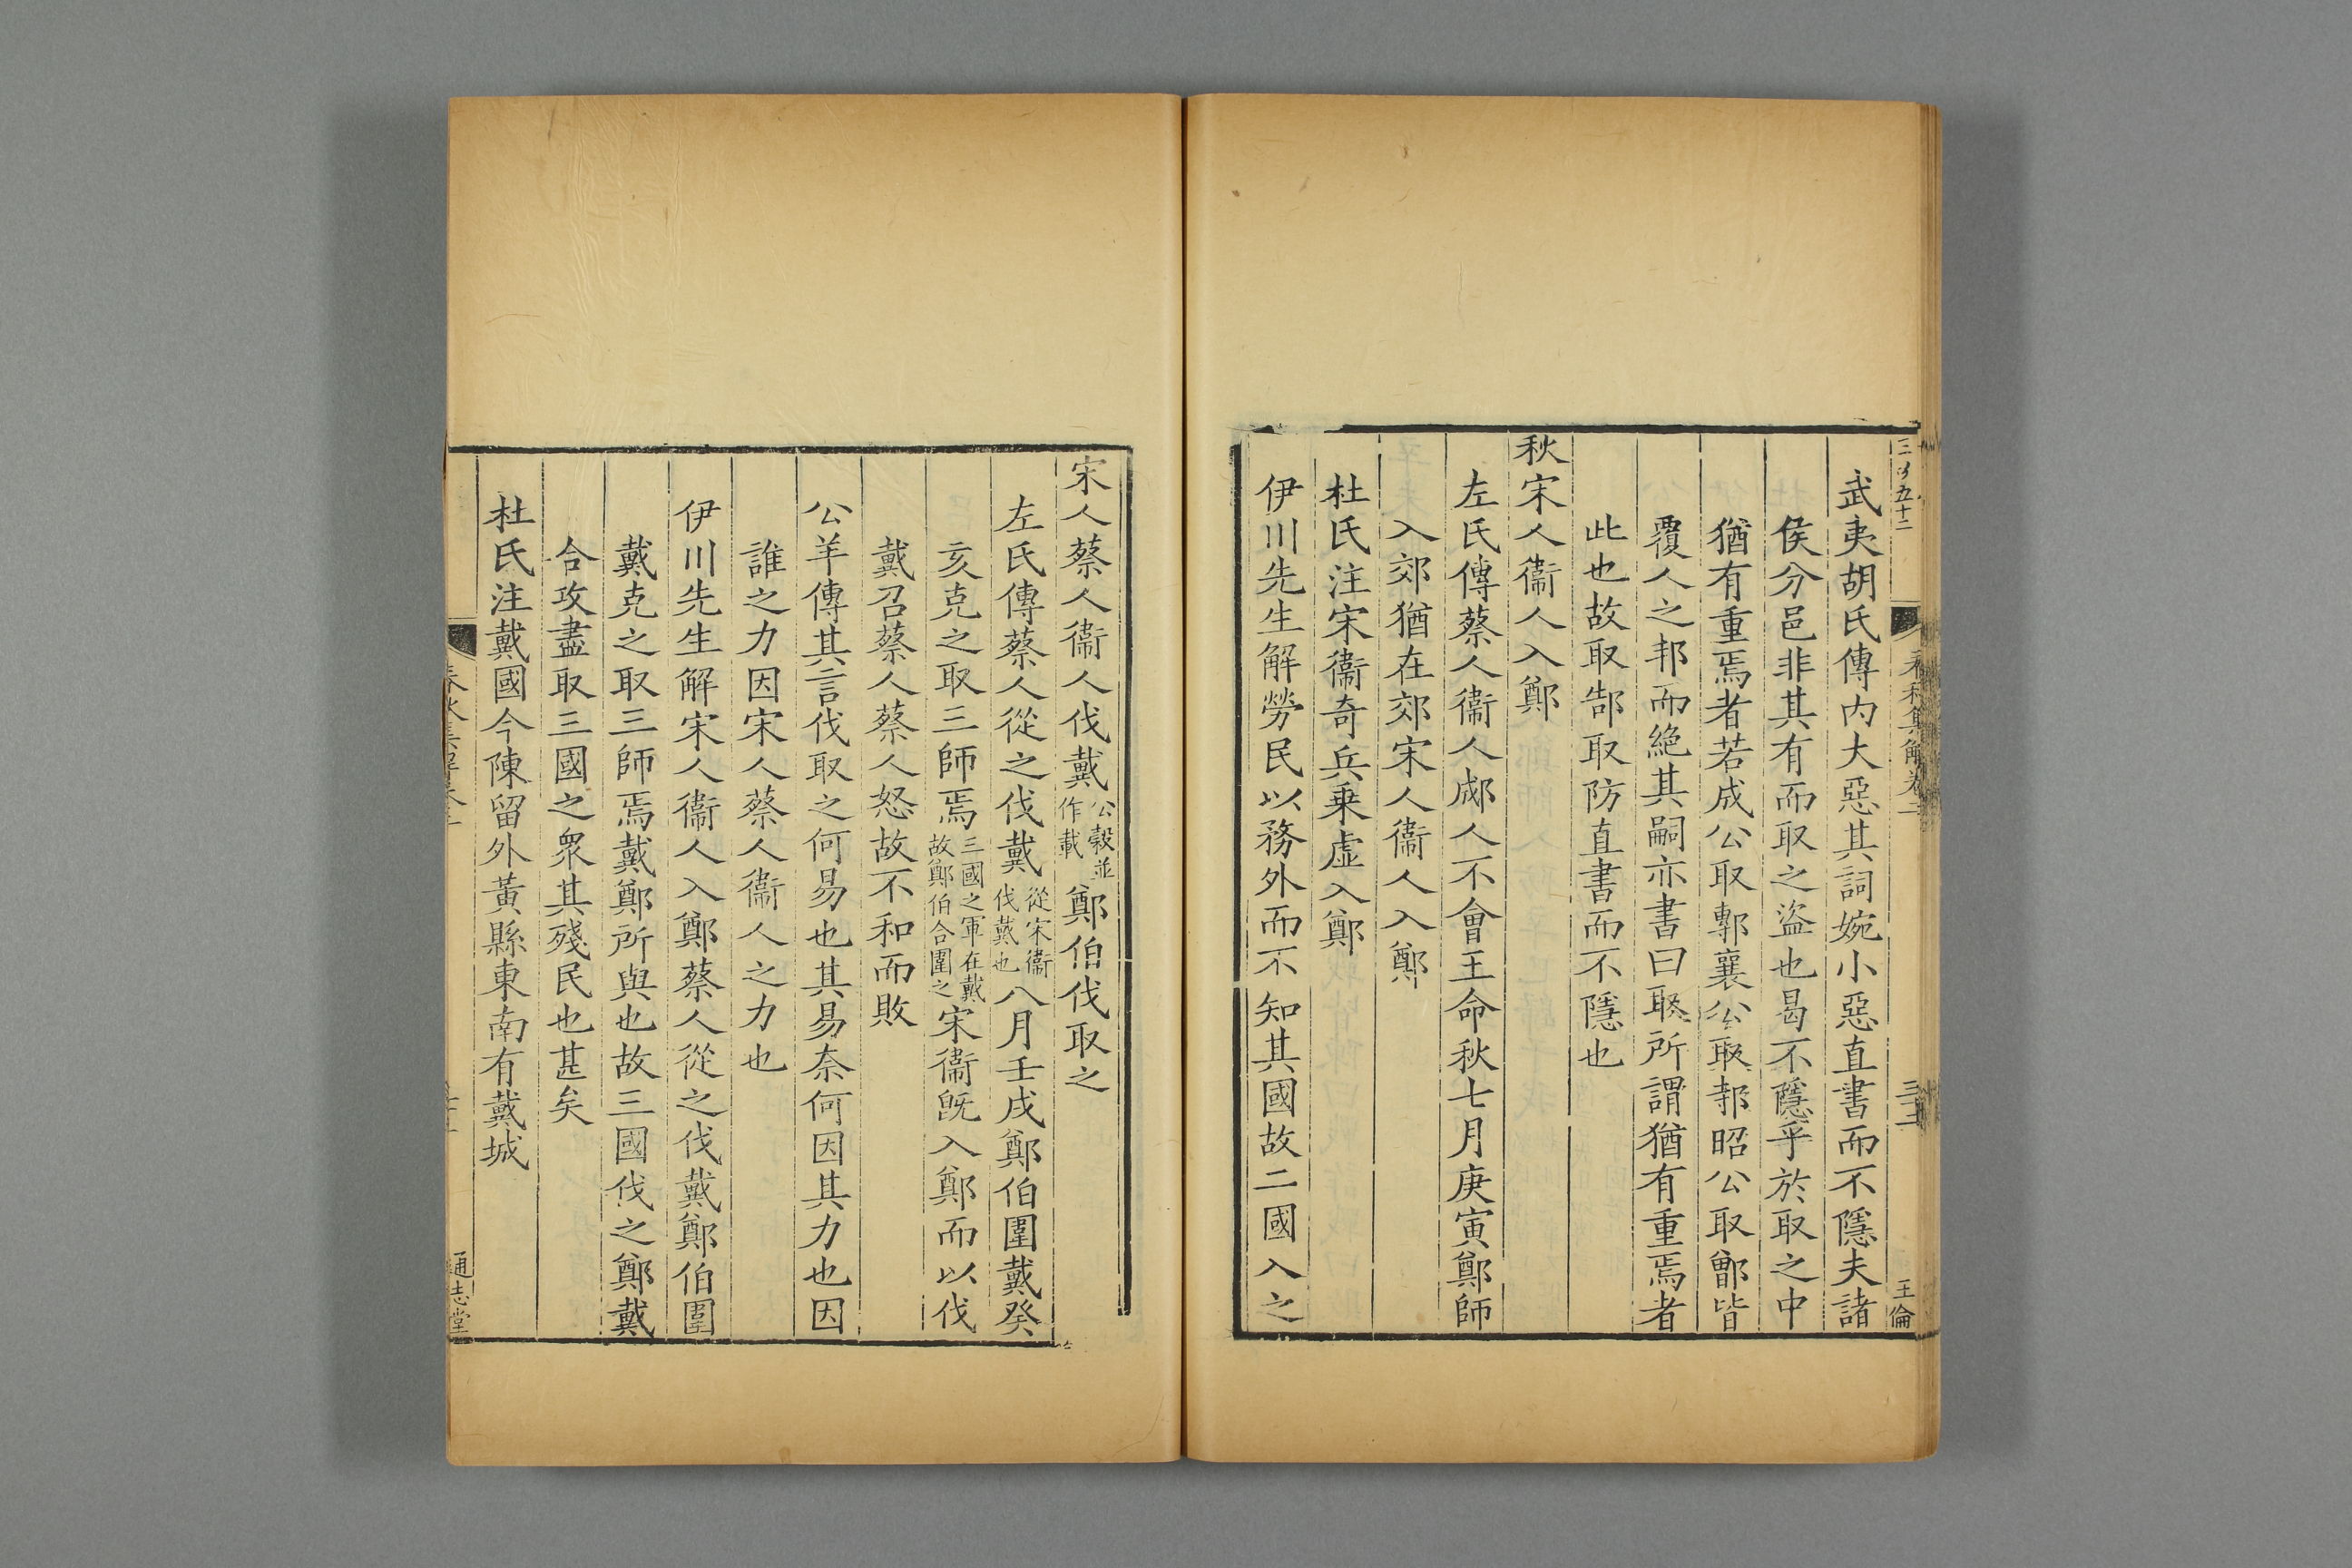 武夷胡氏傳内大惡其詞婉小惡直書而不隱夫諸
侯分邑非其有而取之盜也曷不隱乎於取之中
猶有重焉者若成公取鄟襄公取邿昭公取鄫皆
覆人之邦而絶其嗣亦書曰取所謂猶有重焉者
此也故取郜取防直書而不隱也
秋宋人衞人入鄭
左氏傳蔡人衞人郕人不會王命秋七月庚寅鄭師
入郊猶在郊宋人衞人入鄭
杜氏注宋衞奇兵乗虛入鄭
伊川先生解勞民以務外而不知其國故二國入之
宋人蔡人衞人伐戴公穀並作載鄭伯伐取之
左氏傳蔡人從之伐戴從宋衞伐戴也八月壬戌鄭伯圍戴癸
亥克之取三師焉三國之軍在戴故鄭伯合圍之宋衞旣入鄭而以伐
戴召蔡人蔡人怒故不和而敗
公羊傳其言伐取之何易也其易奈何因其力也因
誰之力因宋人蔡人衞人之力也
伊川先生解宋人衞人入鄭蔡人從之伐戴鄭伯圍
戴克之取三師焉戴鄭所與也故三國伐之鄭戴
合攻盡取三國之衆其殘民也甚矣
杜氏注戴國今陳留外黃縣東南有戴城
通志堂
王倫